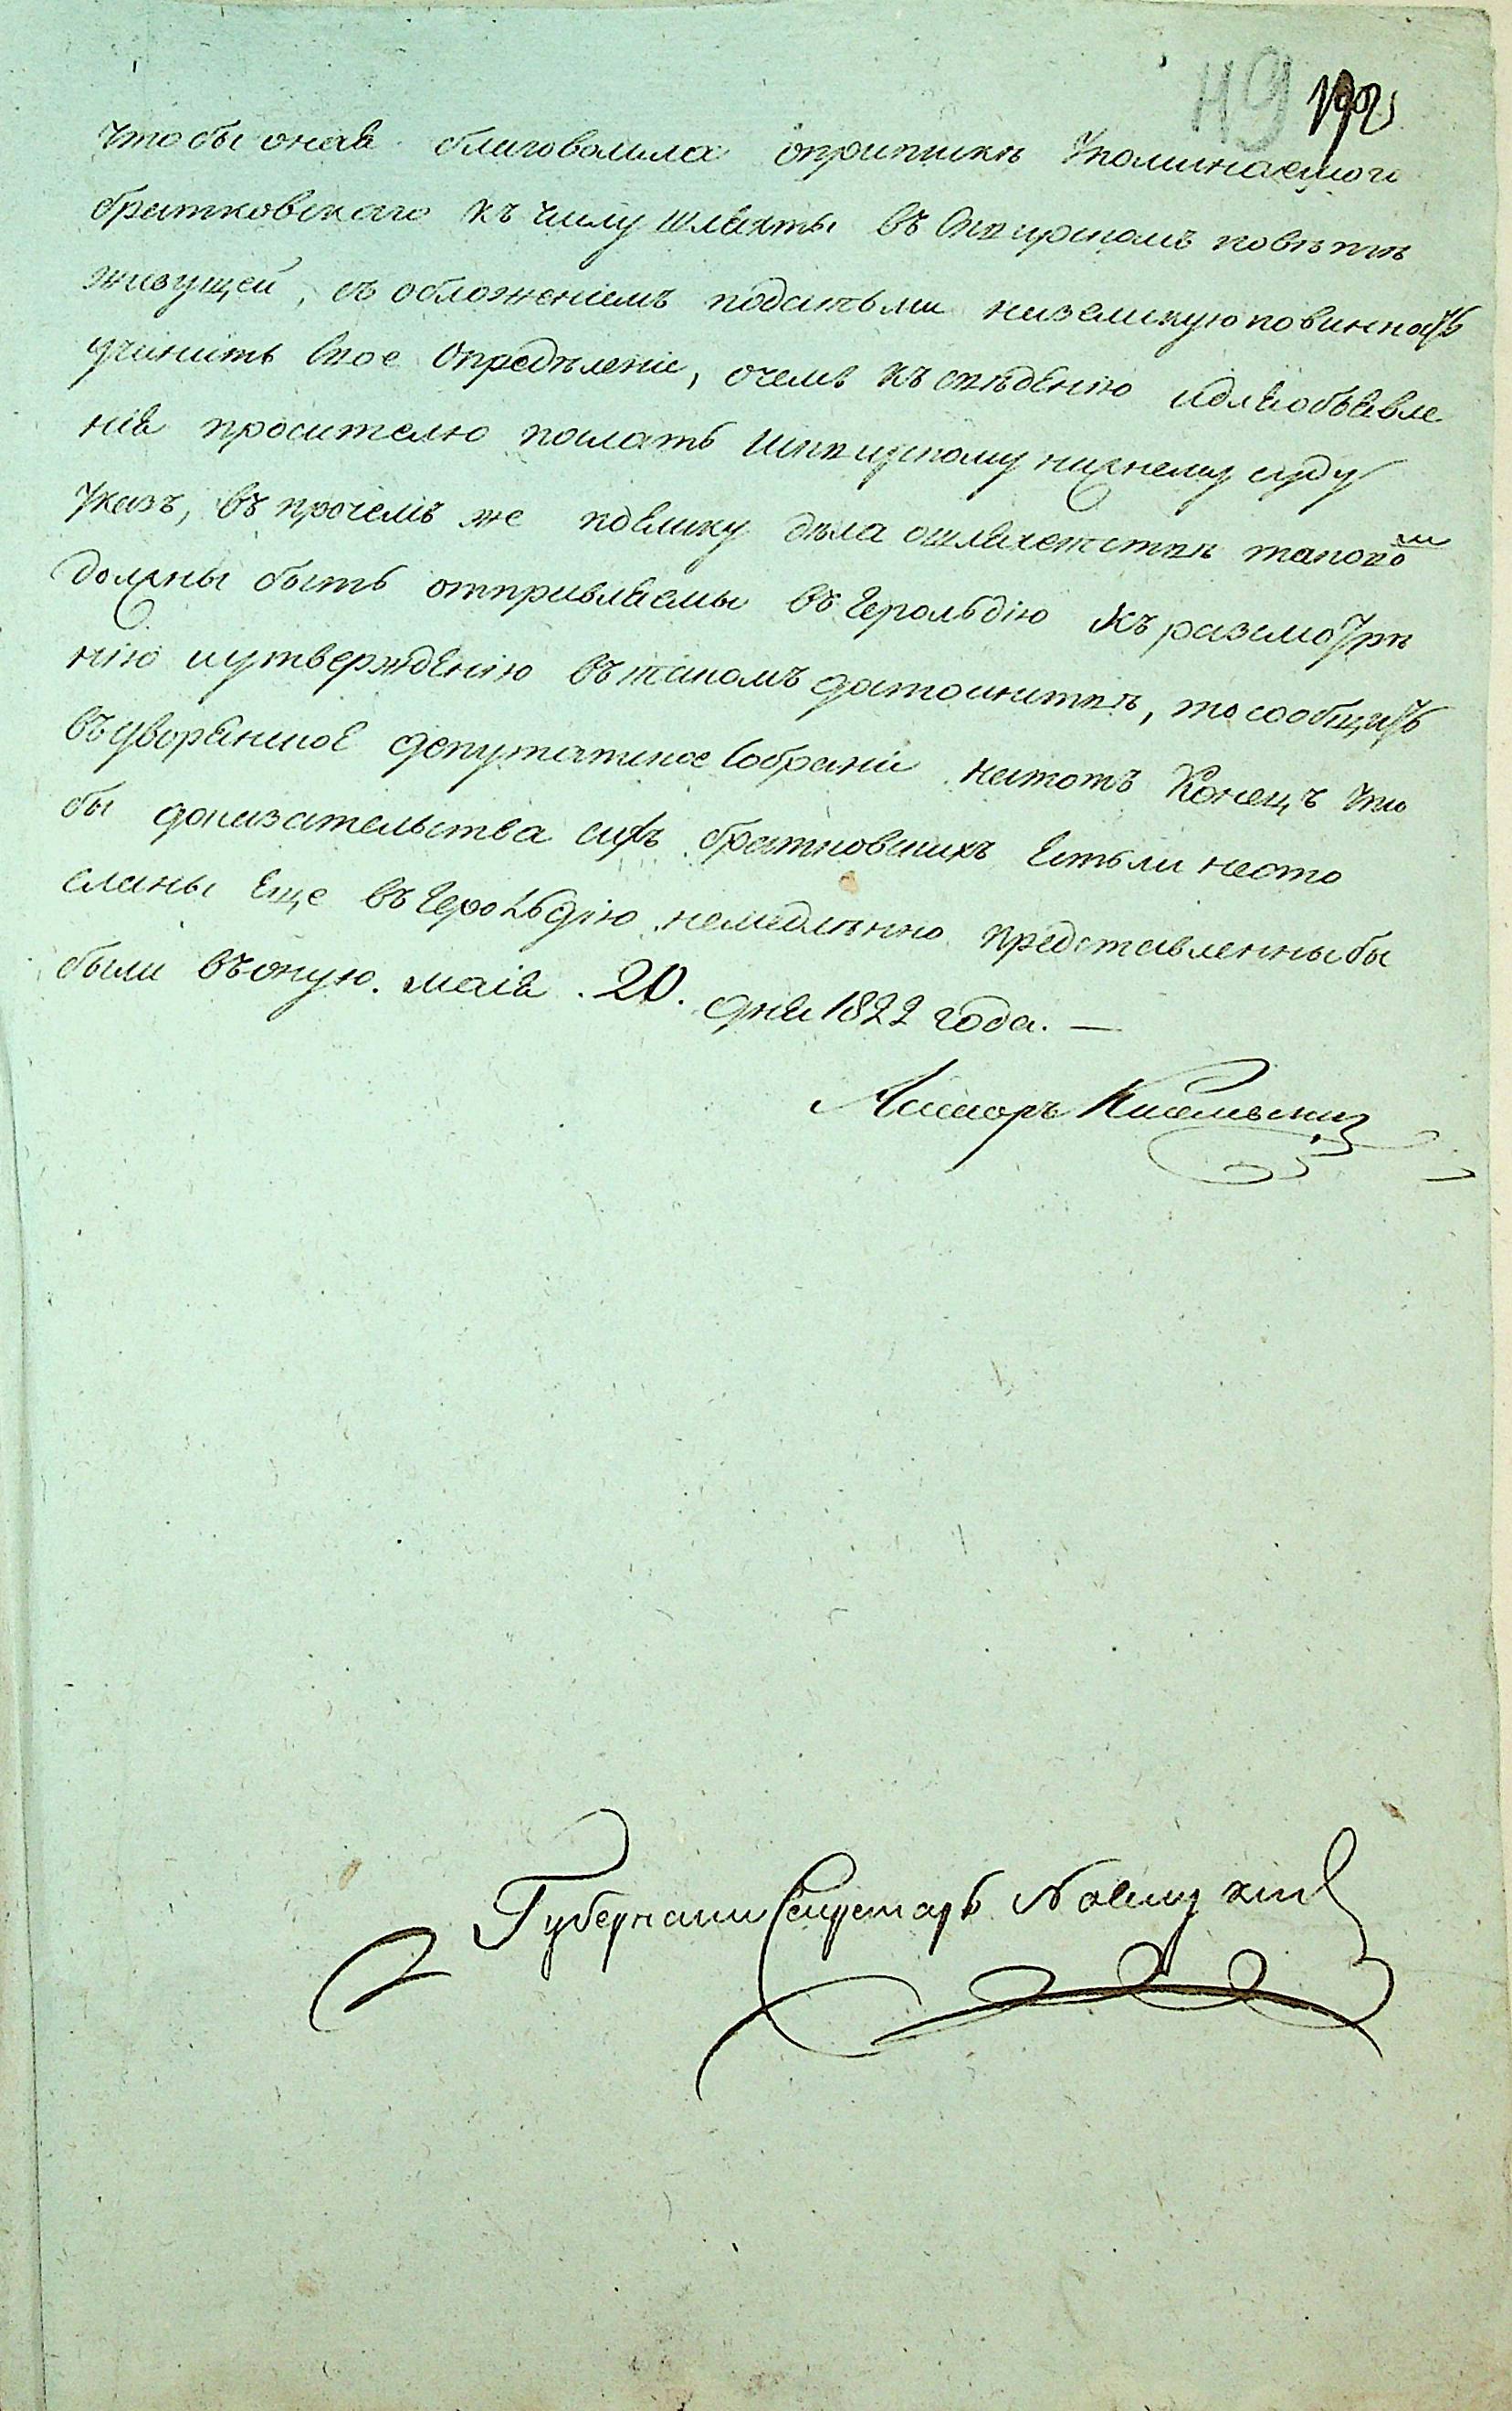 49 192
чтобы оная благоволила опрыпискѣ Упоминаемого
братковскаго къ числу шляхты въ Сквирскомъ повѣтѣ
живущей, съ обложеніемъ податьми на земскую повинность
учинить Свое Опредѣленіе, о чемъ къ свѣдѣнію и для объявле
нія просителю послать Сквирскому нижнему суду
Указъ, въ прочемъ же поелику дѣла о шляхетствѣ таково
должны быть отправляемы въ Герольдію къ разсмотрѣ
нію и утвержденію въ такомъ достоинствѣ, то сообщить
въ дворянское депутатское Собраніе на тотъ Конецъ что
бы доказательства сихъ братковскихъ Естьли не ото
сланы Еще въ Герольдію немедлѣнно представленны бы
были въ оную. маія .20. дня 1822 года. —
Асессоръ
Губернскій Секретарь